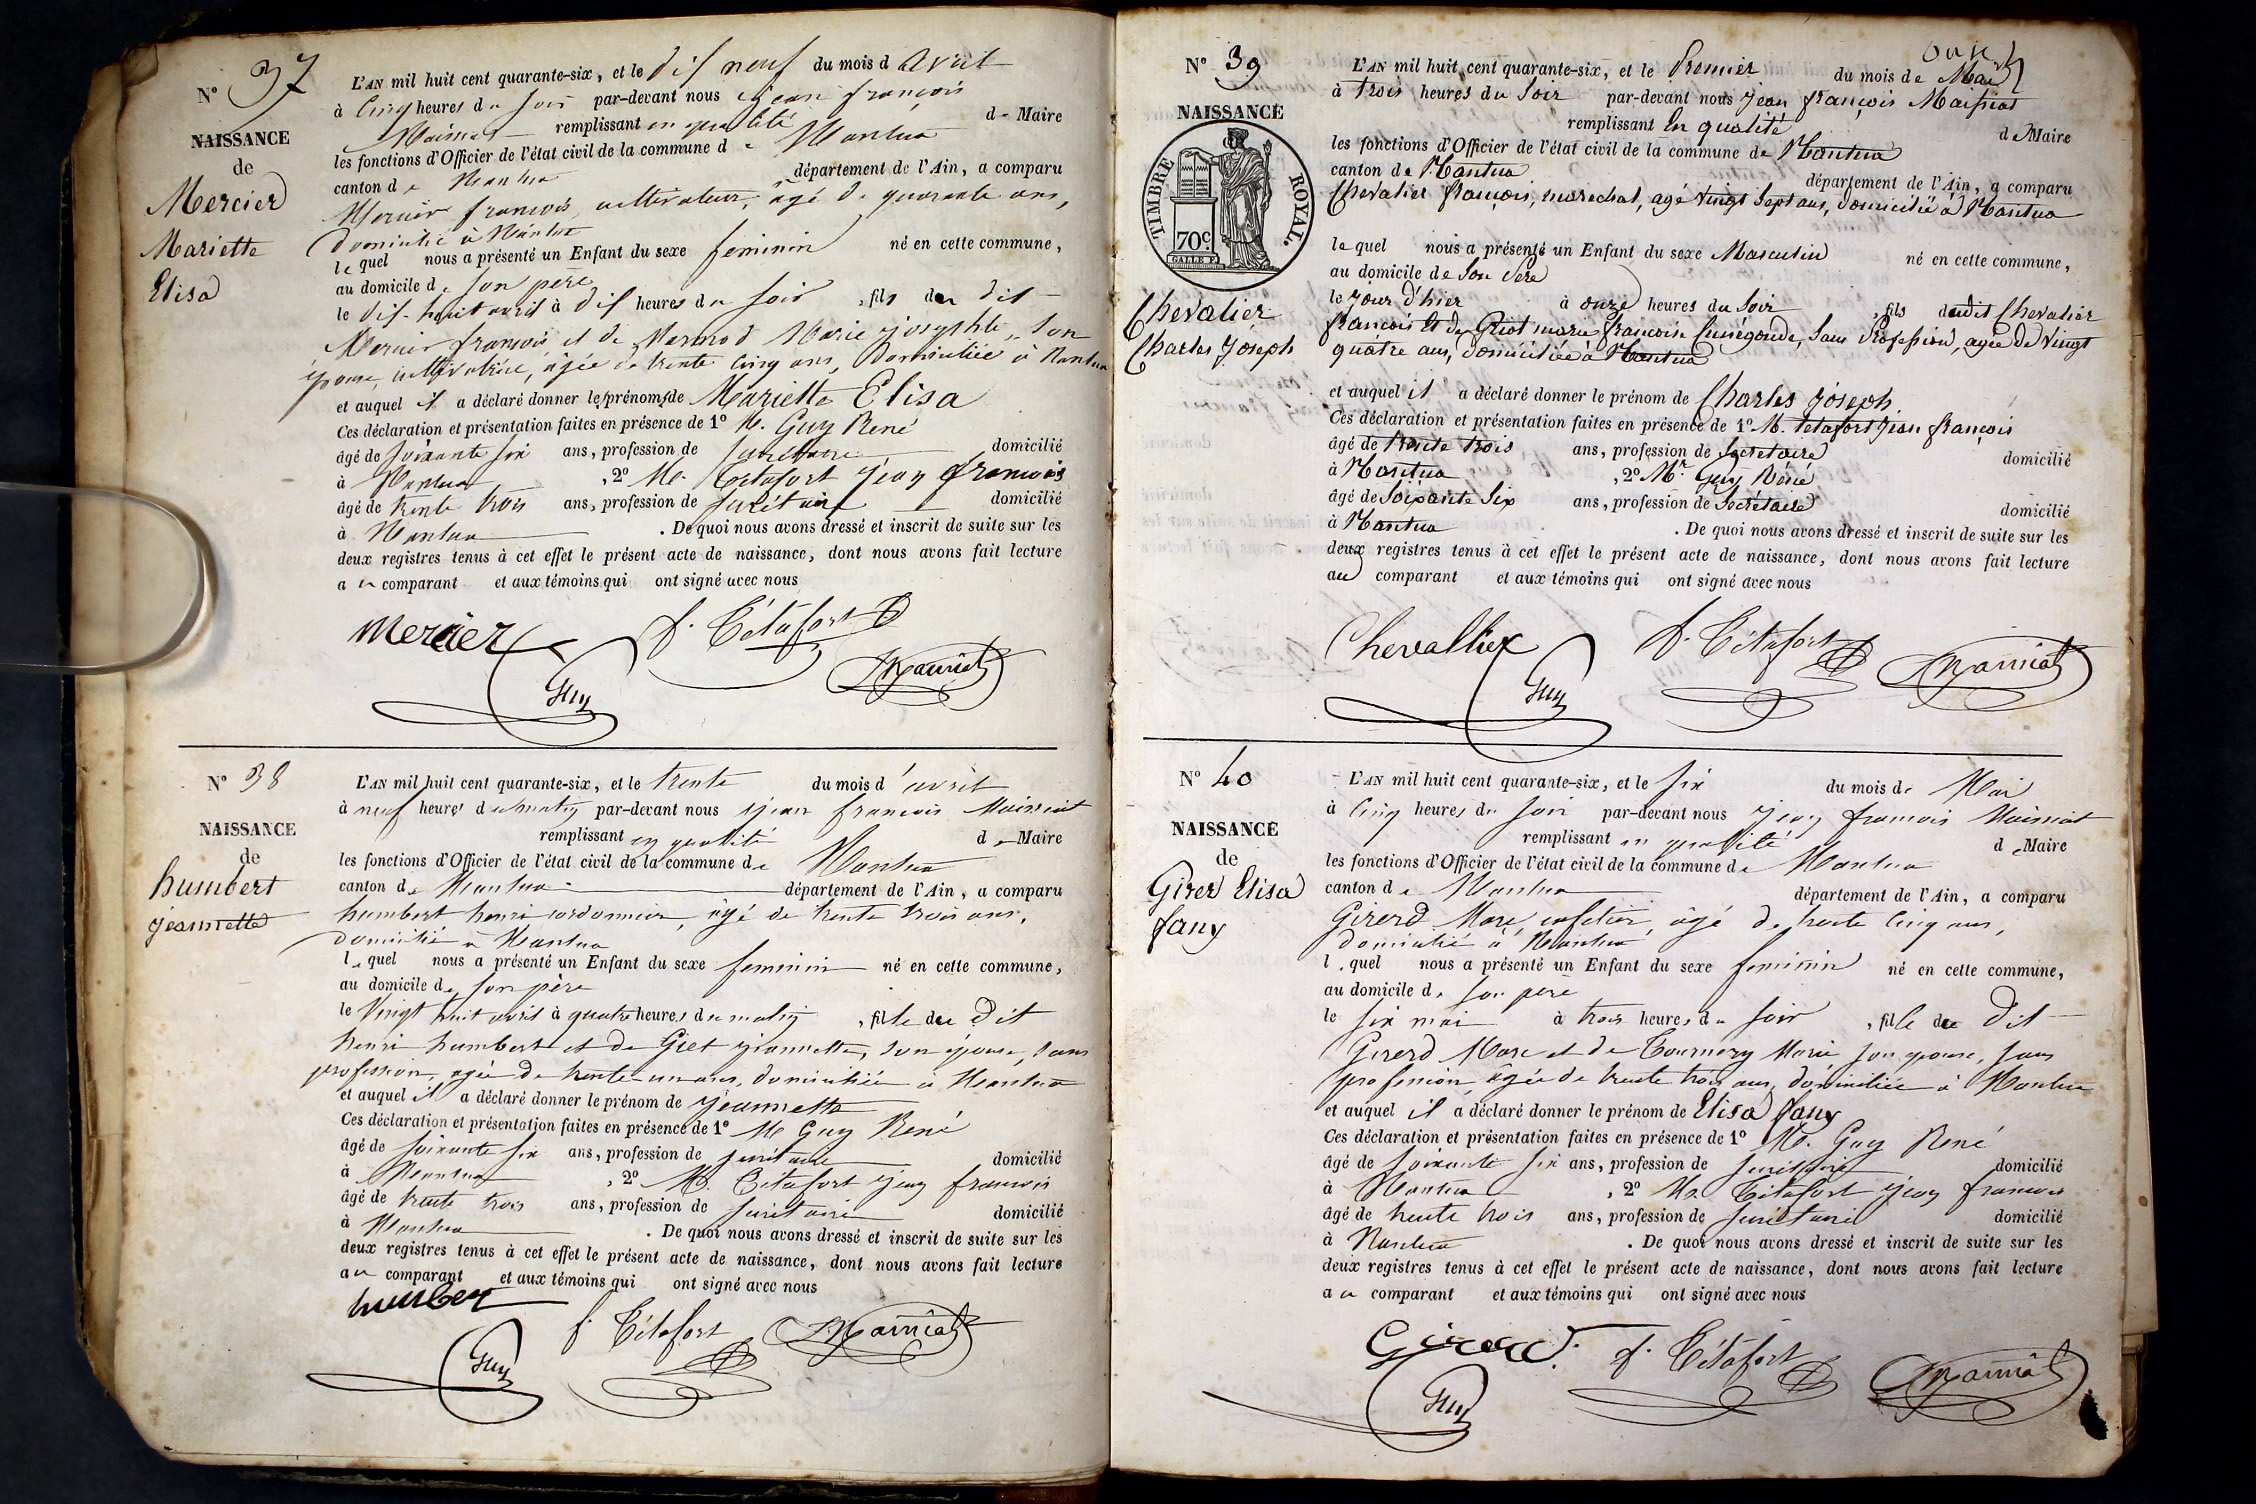 N° 37
NAISSANCE
de
Mercier
Mariette
Elisa
L'AN mil huit cent quarante-six, et le dix neuf du mois d'avril
à cinq heures du soir par-devant nous jean françois
Maissiat remplissant en qualité de Maire
les fonctions d'Officier de l'état civil de la commune de Nantua
canton de Nantua département de l'Ain, a comparu
Mercier françois, cultivateur, âgé de quarante ans,
domicilié à Nantua
lequel nous a présenté un Enfant du sexe feminin né en cette commune,
au domicile de son père
le dix-huit avril à dix heures du soir, fils du dit
Mercier françois et de Mermod Marie josephte, son
épouse, cultivatrice, âgée de trente cinq ans, domiciliée à Nantua
et auquel il a déclaré donner les prénoms de Mariette Elisa
Ces déclaration et présentation faites en présence de 1° M. Guy René
âgé de soixante six ans, profession de secrétaire domicilié
à Nantua, 2° M. Tétafort jean françois
âgé de trente trois ans, profession de secrétaire domicilié
à Nantua. De quoi nous avons dressé et inscrit de suite sur les
deux registres tenus à cet effet le présent acte de naissance, dont nous avons fait lecture
au comparant et aux témoins qui ont signé avec nous
Mercier f. Tétafort
Guy Maissiat
N° 38
NAISSANCE
de
humbert
jeannette
L'AN mil huit cent quarante-six, et le trente du mois d'avril
à neuf heures du matin par-devant nous jean françois Maissiat
remplissant en qualité de Maire
les fonctions d'Officier de l'état civil de la commune de Nantua
canton de Nantua département de l'Ain, a comparu
humbert henri cordonnier, âgé de trente trois ans,
domicilié à Nantua
lequel nous a présenté un Enfant du sexe feminin né en cette commune,
au domicile de son père
le vingt huit avril à quatre heures du matin, fille du dit
henri humbert et de Griet jeannette, son épouse, sans
profession, âgée de trente un ans, domiciliée à Nantua
et auquel il a déclaré donner le prénom de jeannette
Ces déclaration et présentation faites en présence de 1° M Guy René
âgé de soixante six ans, profession de secrétaire domicilié
à Nantua, 2° M. Tétafort jean françois
âgé de trente trois ans, profession de secrétaire domicilié
à Nantua. De quoi nous avons dressé et inscrit de suite sur les
deux registres tenus à cet effet le présent acte de naissance, dont nous avons fait lecture
au comparant et aux témoins qui ont signé avec nous
humbert
Guy f. Tétafort Maissiat
N° 39
NAISSANCE
TIMBRE ROYAL.
70c.
Chevalier
Charles Joseph
L'AN mil huit cent quarante-six, et le Premier du mois de Mai
à trois heures du Soir par-devant nous Jean françois Maissiat
remplissant En qualité de Maire
les fonctions d'Officier de l'état civil de la commune de Nantua
canton de Nantua département de l'Ain, a comparu
Chevalier françois, marechal, agé vingt Sept ans, domicilié à Nantua
lequel nous a présenté un Enfant du sexe Masculin né en cette commune,
au domicile de Son Père
le jour d'hier à onze heures du Soir, fils dudit Chevalier
françois Et de françoise Cunégonde, Sans Profession, agée de Vingt
quatre ans, domiciliée à Nantua
et auquel il a déclaré donner le prénom de Charles joseph
Ces déclaration et présentation faites en présence de 1° M. tetafort jean françois
âgé de trente trois ans, profession de Secrétaire domicilié
à Nantua, 2° Mr. Guy Réné
âgé de Soixante Six ans, profession de Secrétaire domicilié
à Nantua. De quoi nous avons dressé et inscrit de suite sur les
deux registres tenus à cet effet le présent acte de naissance, dont nous avons fait lecture
au comparant et aux témoins qui ont signé avec nous
Chevallier f. Tétafort
Guy Maissiat
N° 40
NAISSANCE
de
Girer Elisa
fany
L'AN mil huit cent quarante-six, et le six du mois de Mai
à cinq heures du soir par-devant nous jean françois Maissiat
remplissant en qualité de Maire
les fonctions d'Officier de l'état civil de la commune de Nantua
canton de Nantua département de l'Ain, a comparu
Girerd Marc, cafetier, âgé de trente cinq ans,
domicilié à Nantua
lequel nous a présenté un Enfant du sexe feminin né en cette commune,
au domicile de son père
le six mai à trois heures du soir, fille du dit
Girerd Marc et de Tournery Marie son épouse, sans
profession, âgée de trente trois ans, domiciliée à Nantua
et auquel il a déclaré donner le prénom de Elisa fany
Ces déclaration et présentation faites en présence de 1° M. Guy René
âgé de soixante six ans, profession de secrétaire domicilié
à Nantua, 2° M. Tétafort jean françois
âgé de trente trois ans, profession de secrétaire domicilié
à Nantua. De quoi nous avons dressé et inscrit de suite sur les
deux registres tenus à cet effet le présent acte de naissance, dont nous avons fait lecture
au comparant et aux témoins qui ont signé avec nous
Girerd. f. Tétafort
Guy Maissiat